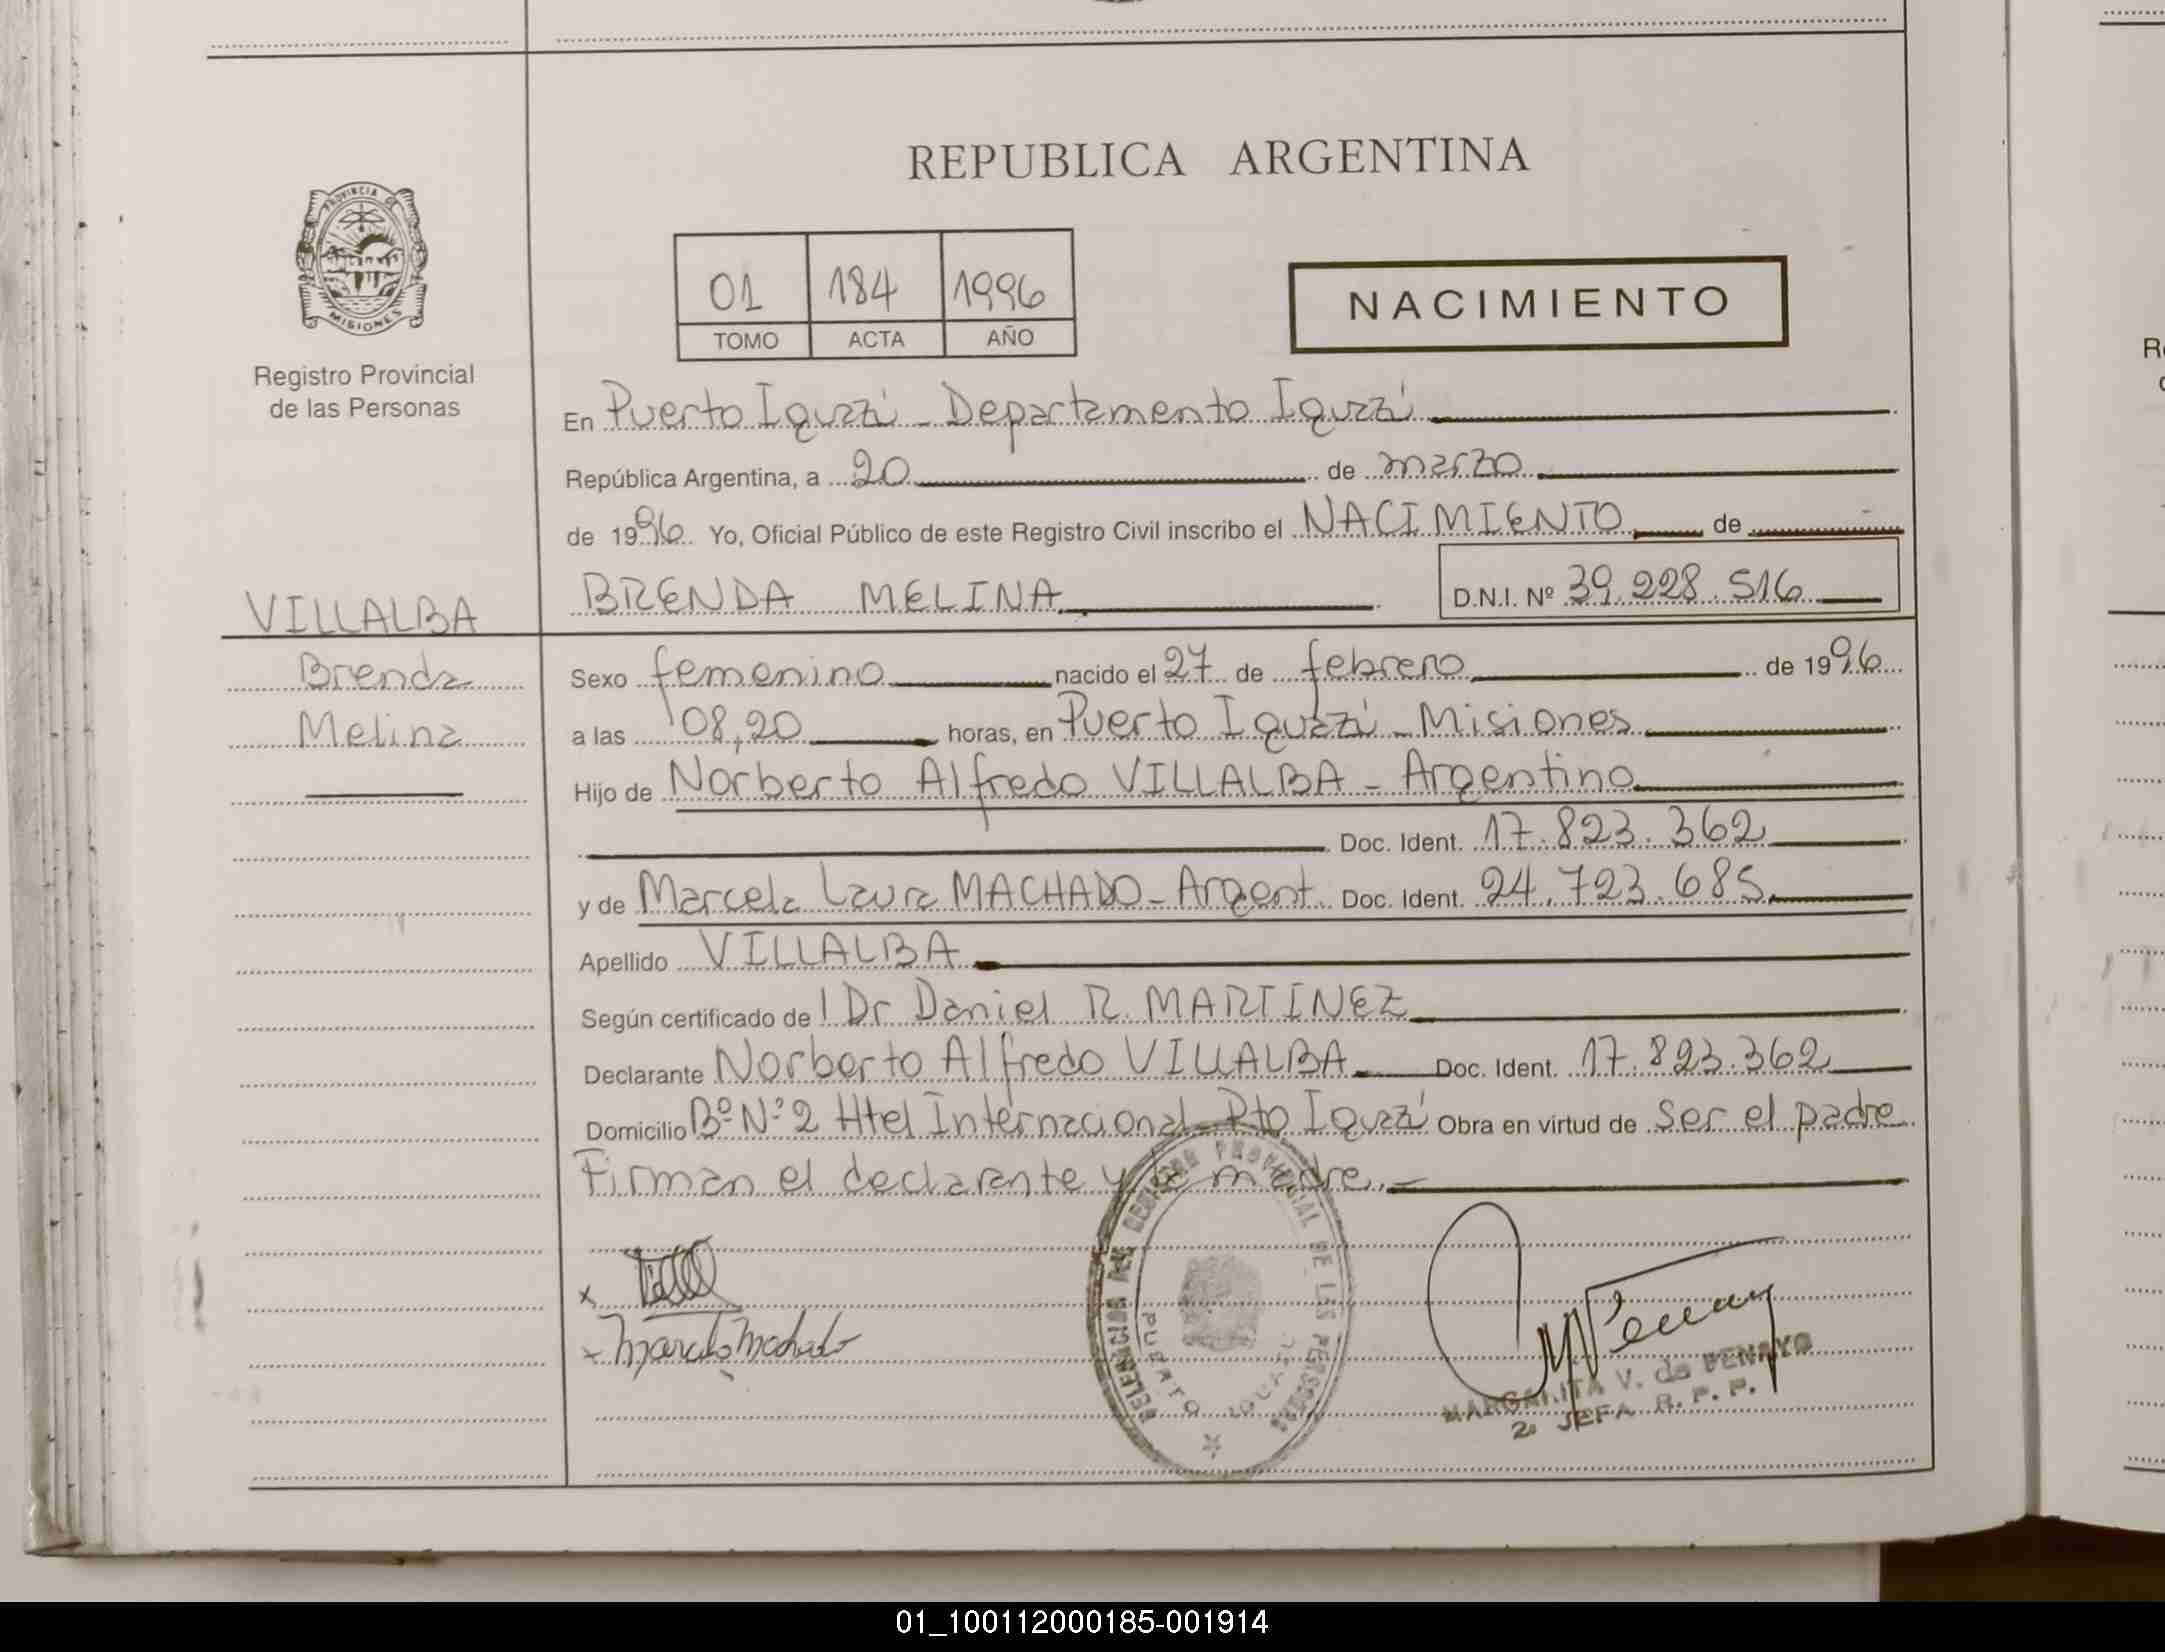 REPUBLICA ARGENTINA
PROVINCIA DE
MISIONES
Registro Provincial
de las Personas
01 184 1996
TOMO ACTA AÑO
NACIMIENTO
En Puerto Iguazú - Departamento Iguazú
República Argentina, a 20 de marzo
de 1996 Yo, Oficial Público de este Registro Civil inscribo el NACIMIENTO de
VILLALBA
BRENDA MELINA D.N.I. Nº 39.228.516
Brenda
Sexo femenino nacido el 27 de febrero de 1996
Melina
a las 08,20 horas, en Puerto Iguazú - Misiones
Hijo de Norberto Alfredo VILLALBA - Argentino
Doc. Ident. 17.823.362
y de Marcela Laura MACHADO - Argent. Doc. Ident. 24.723.685
Apellido VILLALBA
Según certificado de l Dr Daniel R. MARTINEZ
Declarante Norberto Alfredo VILLALBA Doc. Ident. 17.823.362
Domicilio Bº Nº 2 Htel Internacional - Pto Iguazú Obra en virtud de ser el padre
Firman el declarante y la madre.-
x
x Marcela Machado
DELEGACION REGISTRO PROVINCIAL DE LAS PERSONAS
PUERTO IGUAZU
MARGARITA V. de BENAYO
2. JEFA R. P. P.
01_100112000185-001914